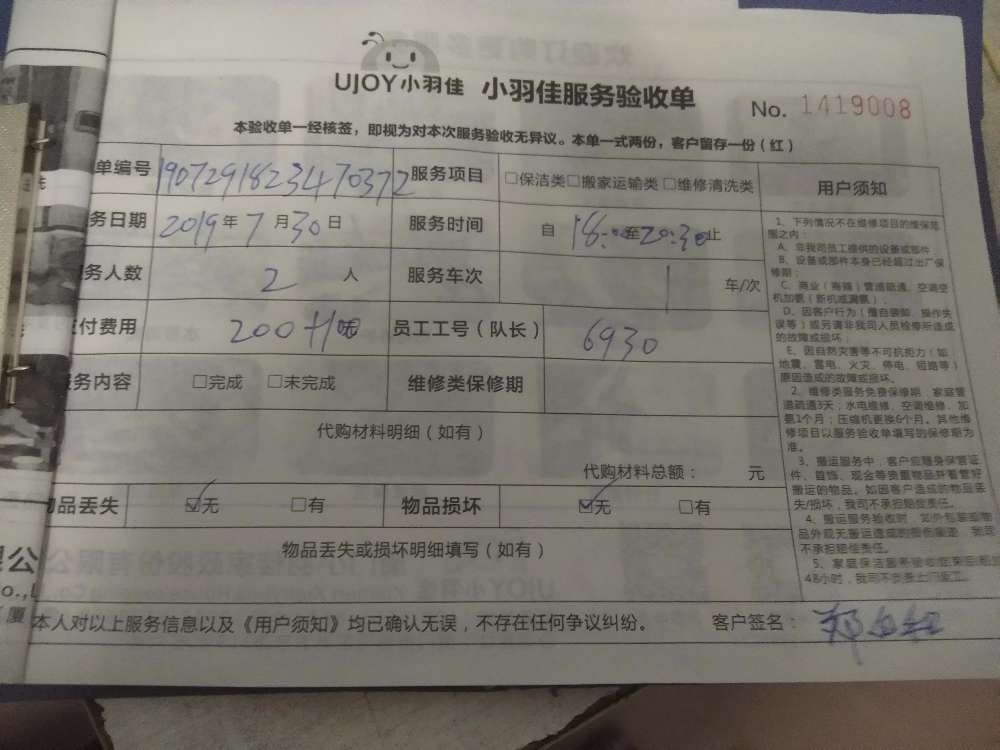 UJOY小羽佳 小羽佳服务验收单 No. 1419008
本验收单一经核签，即视为对本次服务验收无异议。本单一式两份，客户留存一份（红）
单编号 1907291823470372 服务项目 □保洁类□搬家运输类□维修清洗类 用户须知
务日期 2019年7月30日 服务时间 自18:00至20:30止
务人数 2人 服务车次 1 车/次
付费用 200+100 员工工号（队长） 6930
务内容 □完成 □未完成 维修类保修期
代购材料明细（如有）
代购材料总额： 元
物品丢失 ☑无 □有 物品损坏 ☑无 □有
物品丢失或损坏明细填写（如有）
本人对以上服务信息以及《用户须知》均已确认无误，不存在任何争议纠纷。 客户签名：
1、下列情况不在维修项目的维保范
围之内：
A、非我司员工提供的设备或部件
B、设备或部件本身已经超过出厂保
修期；
C、商业（海鲜）管道疏通、空调空
机加氨（新机或漏氨）、
D、因客户行为（擅自装卸、操作失
误等）或另请非我司人员检修所造成
的故障或损坏；
E、因自然灾害等不可抗拒力（如
地震、雷电、火灾、停电、短路等）
原因造成的故障或损坏。
2、维修类服务免费保修期：家庭管
道疏通3天；水电维修、空调维修、加
氨1个月；压缩机更换6个月。其他维
修项目以服务验收单填写的保修期为
准。
3、搬运服务中，客户应随身保管证
件、首饰、现金等贵重物品并看管好
搬运的物品。如因客户造成的物品丢
失/损坏，我司不承担赔偿责任。
4、搬运服务验收时，如外包装或物
品外观无搬运造成的损伤痕迹，我司
不承担赔偿责任。
5、家庭保洁服务验收
48小时，我司不负责上门返工。
限公
o.,L
厦